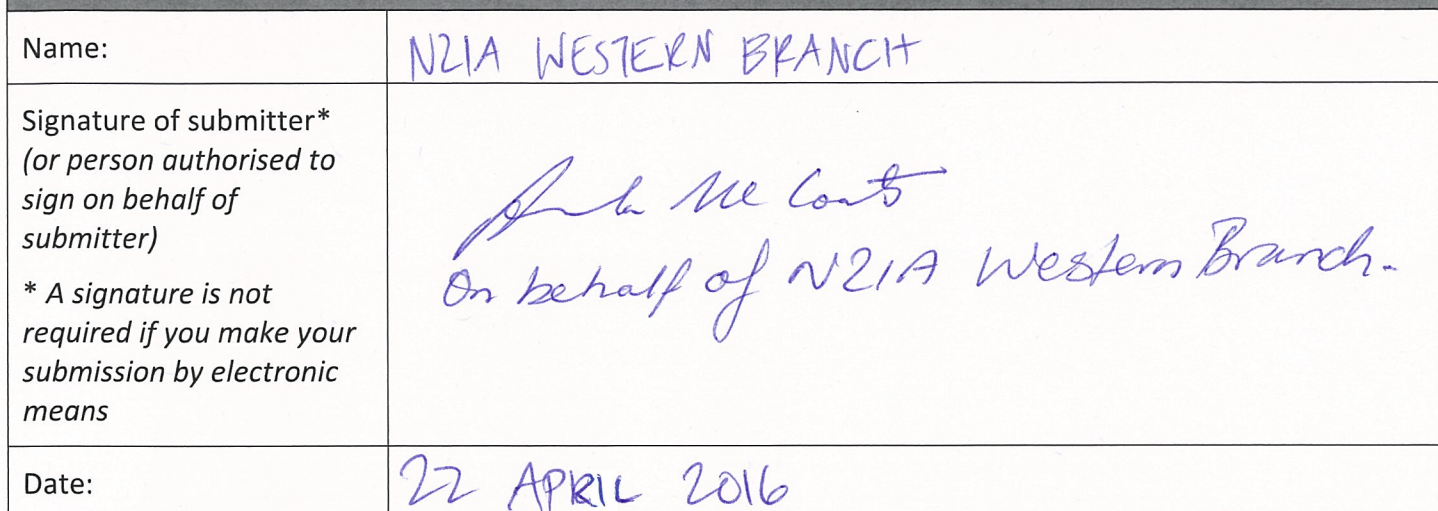 Name:
NZIA WESTERN BRANCH
Signature of submitter*
(or person authorised to
sign on behalf of
submitter)
* A signature is not
required if you make your
submission by electronic
means
On behalf of NZIA Western Branch.
Date:
22 APRIL 2016